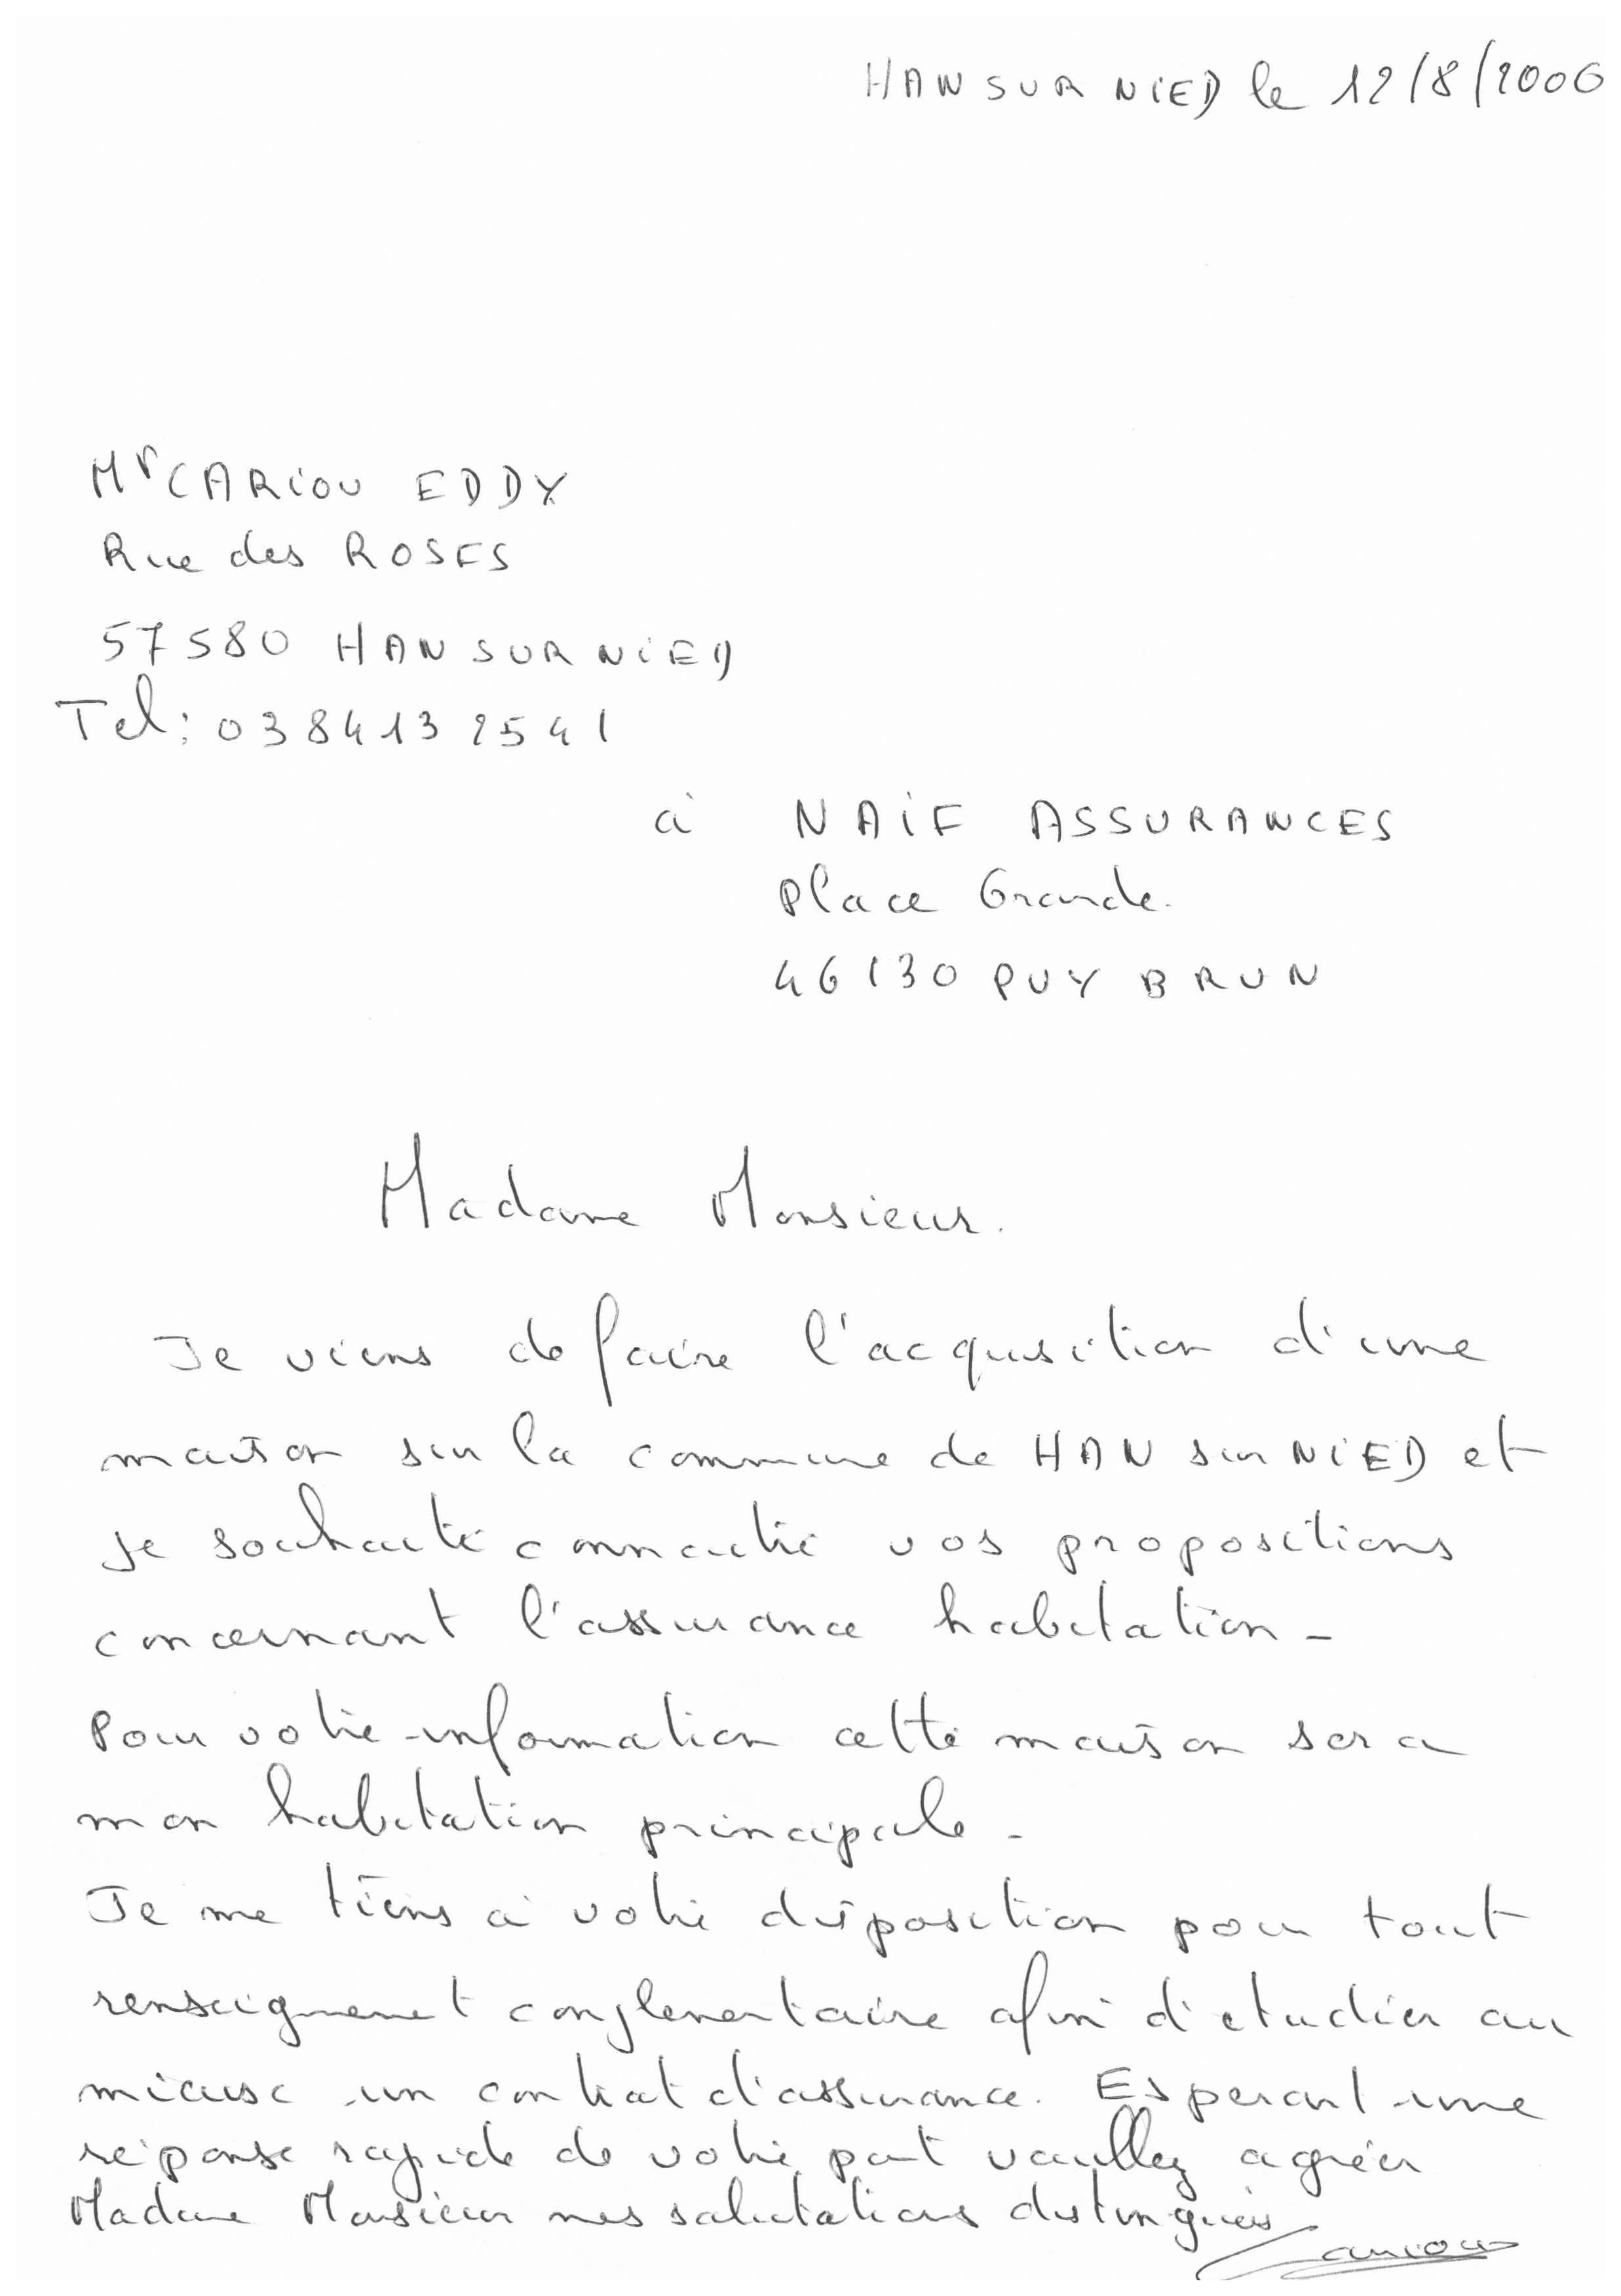 HAN SUR NIED le 12/8/2006
Mr CARIOU EDDY
Rue des ROSES
57580 HAN SUR NIED
Tel: 0384132541
à NAIF ASSURANCES
Place Grande.
46130 PUY BRUN
Madame Monsieur.
Je viens de faire l'acquisition d'une
maison sur la commune de HAN sur NIED et
je souhaite connaitre vos propositions
concernant l'assurance habitation -
Pour votre information cette maison sera
mon habitation principale -
Je me tiens à votre disposition pour tout
renseignement complementaire afin d'etudier au
mieux un contrat d'assurance. Esperant une
réponse rapide de votre part veuillez agréer
Madame Monsieur mes salutations distinguées
Cariou